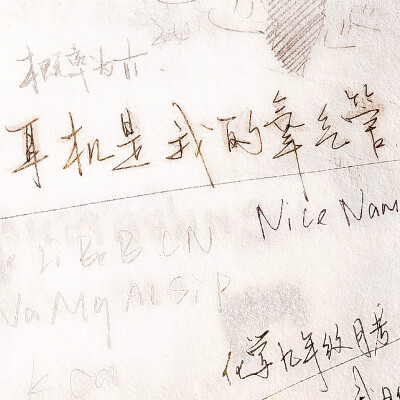 概率为
耳机是我的氧气管
Nice Nam
Li Be B C N
Na Mg Al Si P
化学九年级月考
K Ca